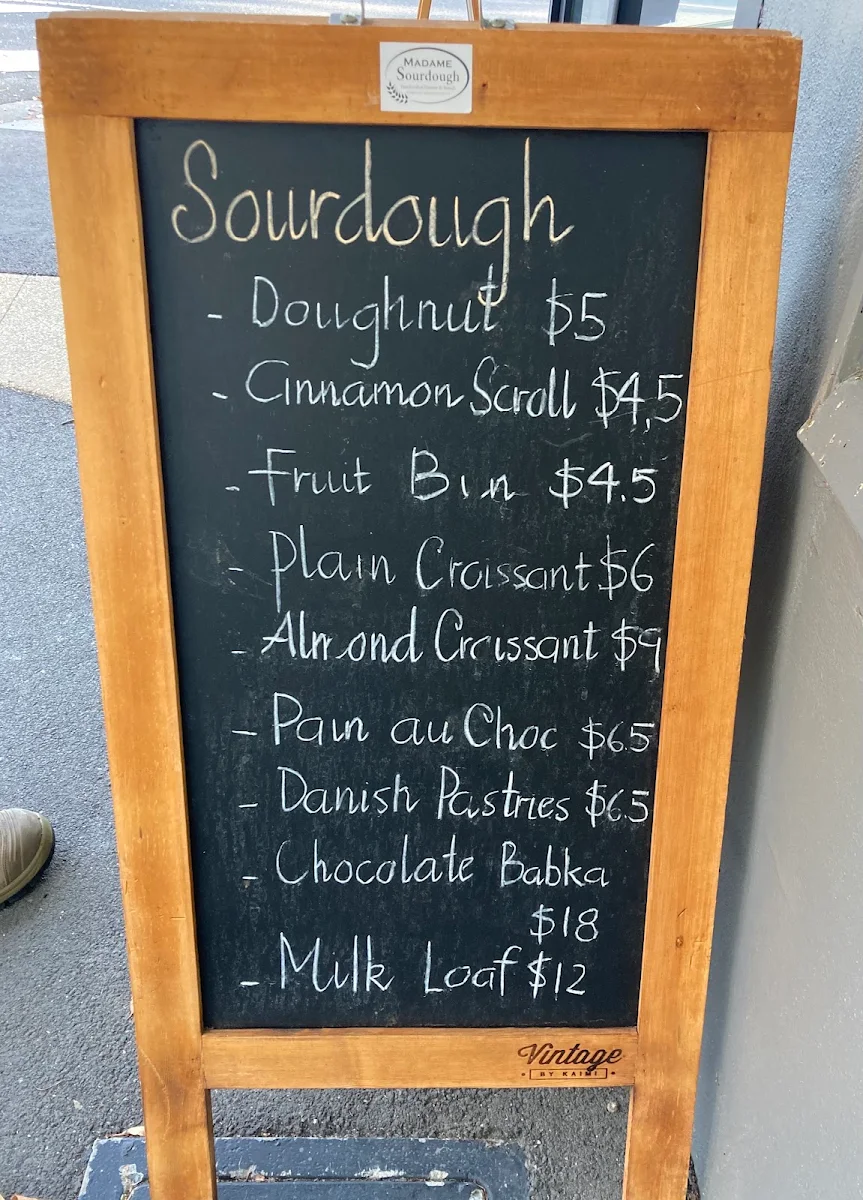 MADAME
Sourdough
Sourdough
- Doughnut $5
- Cinnamon Scroll $4,5
- Fruit Bun $4.5
- Plain Croissant $6
- Almond Croissant $9
- Pain au Choc $6.5
- Danish Pastries $6.5
- Chocolate Babka
$18
- Milk Loaf $12
Vintage
BY KAIMI